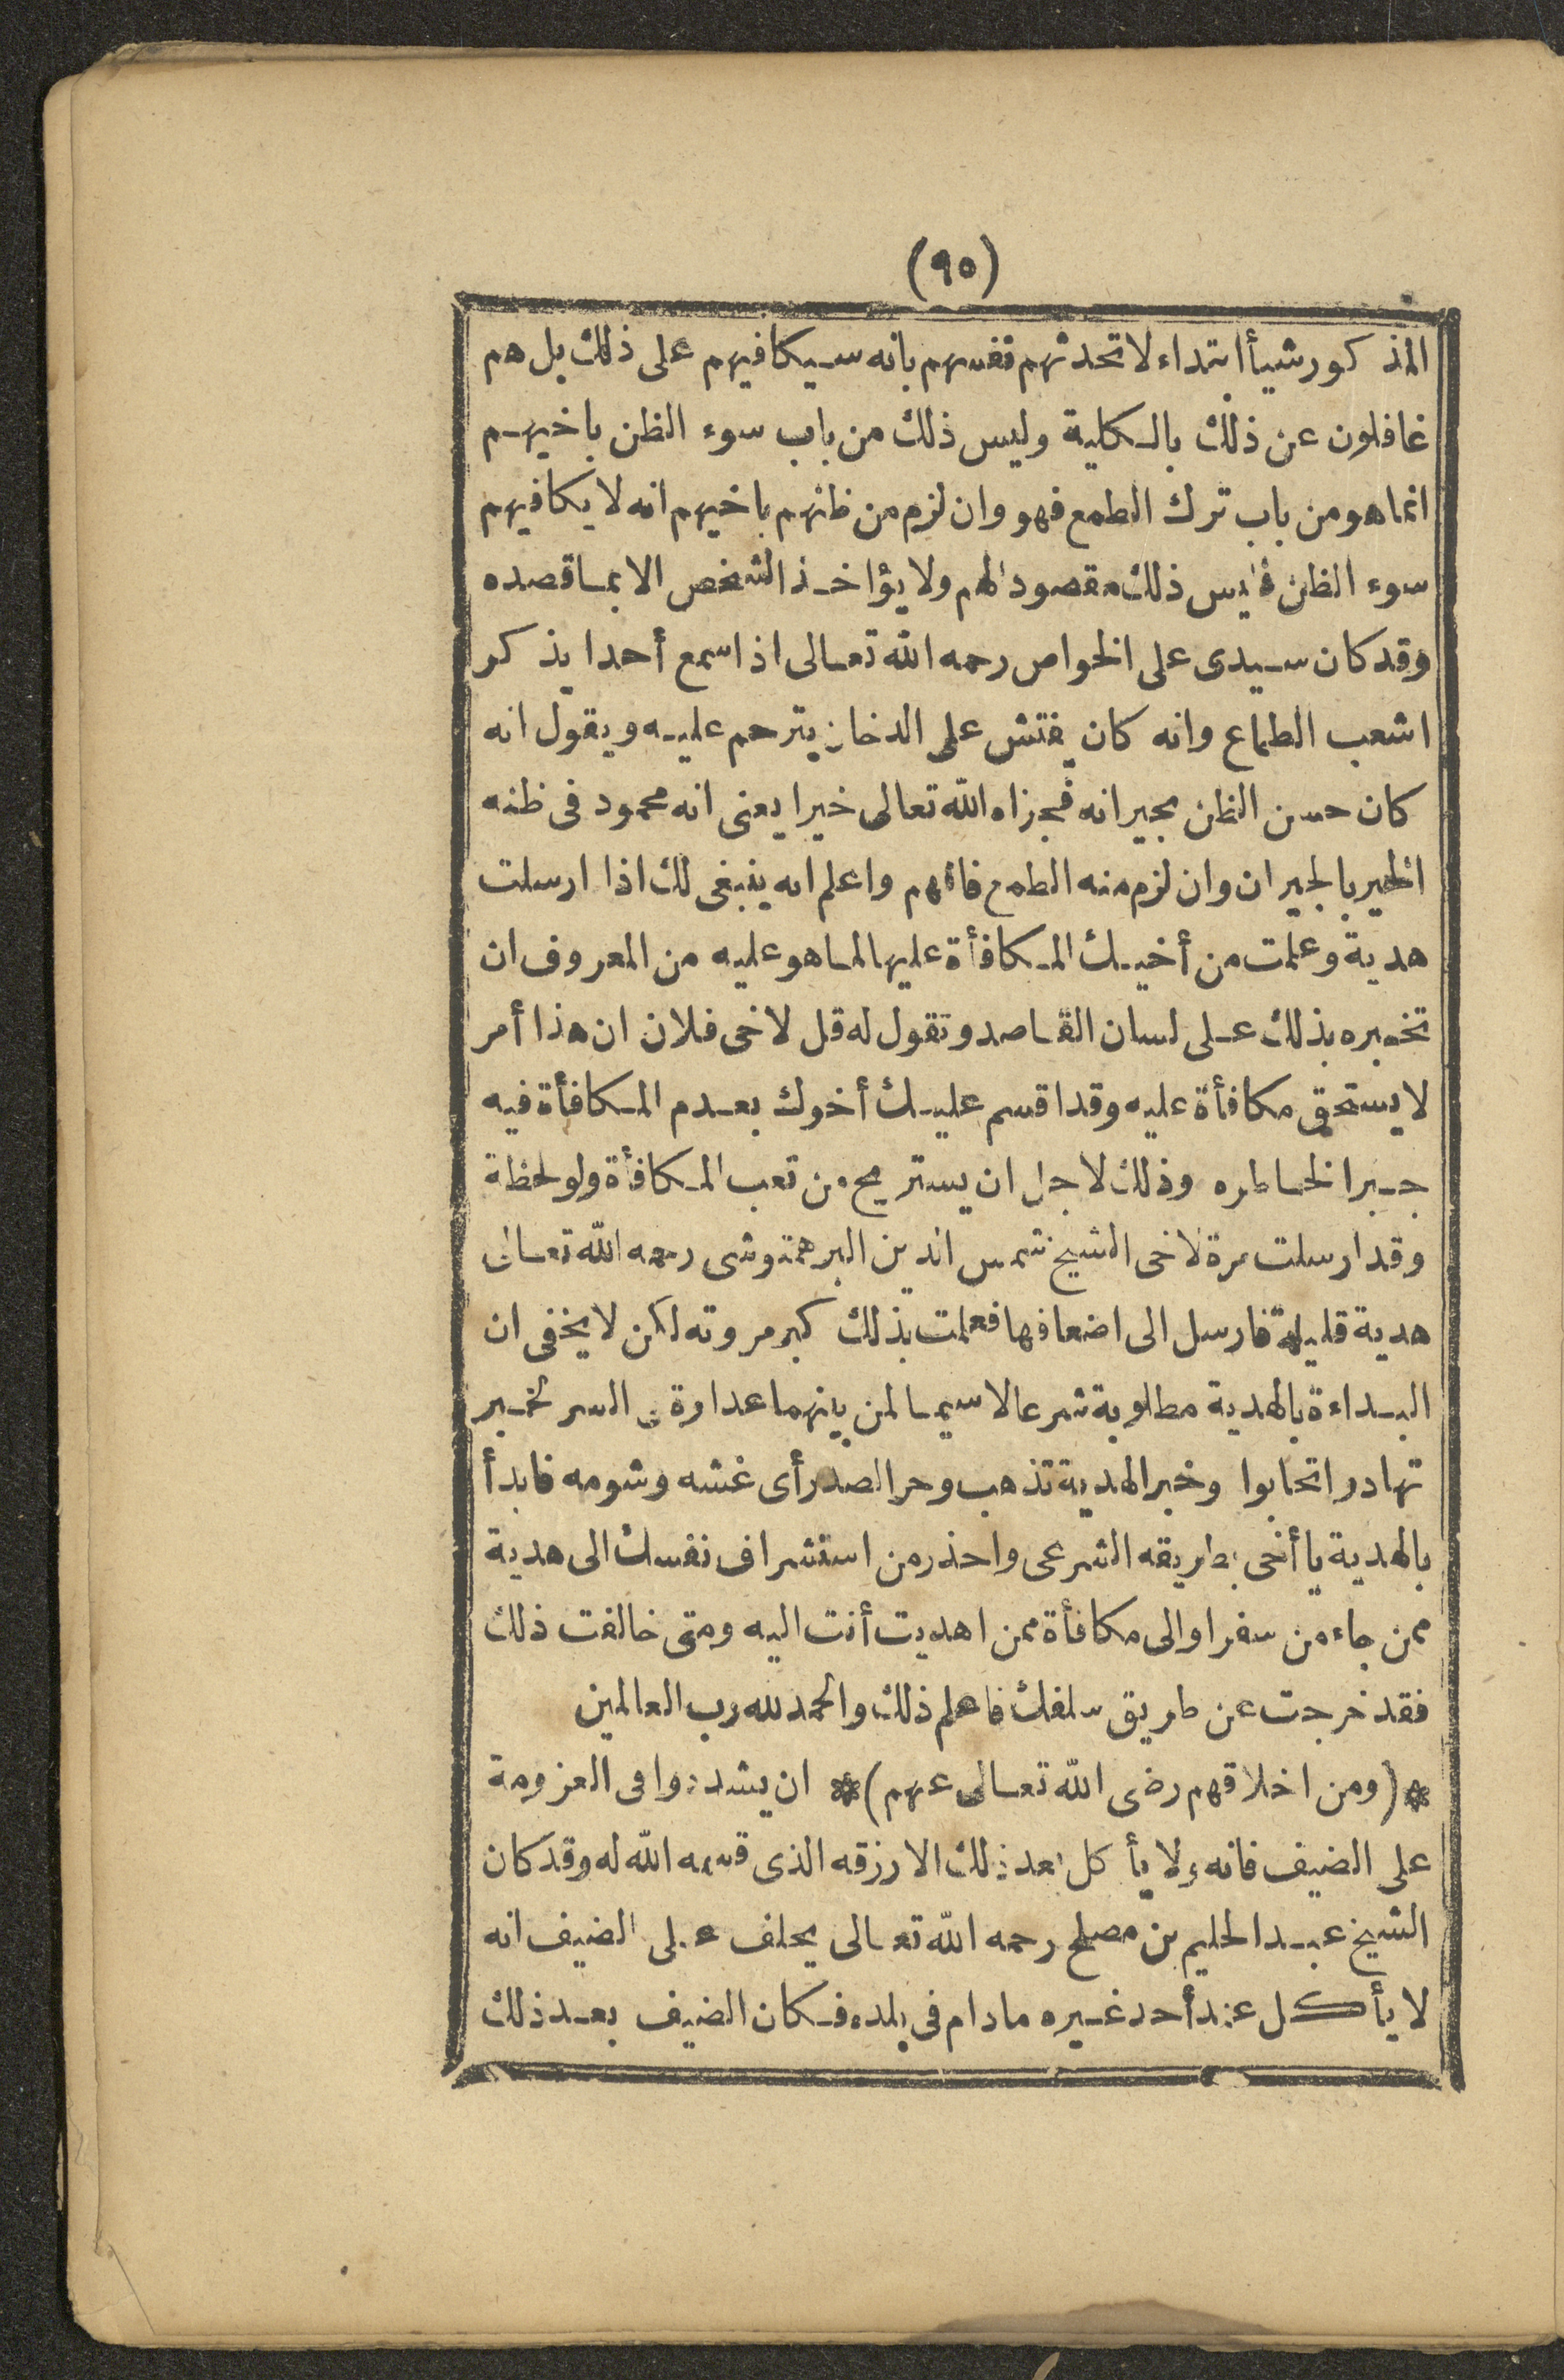 (٩٥)
المذكور شيأ ابتداء لا تحدثهم نفسهم بانه سيكافيهم على ذلك بل هم
غافلون عن ذلك بالكلية وليس ذلك من باب سوء الظن باخيهم
انما هو من باب ترك الطمع فهو وان لزم من ظنهم باخيهم انه لا يكافيهم
سوء الظن فليس ذلك مقصودا لهم ولا يؤاخذ الشخص الا بما قصده
وقد كان سيدى على الخواص رحمه الله تعالى اذا سمع أحدا يذكر
اشعب الطماع وانه كان يفتش على الدخان يترحم عليه ويقول انه
كان حسن الظن بجيرانه فجزاه الله تعالى خيرا يعنى انه محمود فى ظنه
الخير بالجيران وان لزم منه الطمع فافهم واعلم انه ينبغى لك اذا ارسلت
هدية وعلمت من أخيك المكافأة عليها لما هو عليه من المعروف ان
تخبره بذلك على لسان القاصد وتقول له قل لاخى فلان ان هذا أمر
لا يستحق مكافأة عليه وقد اقسم عليك أخوك بعدم المكافأة فيه
جبرا لخاطره وذلك لاجل ان يستريح من تعب المكافأة ولو لحظة
وقد ارسلت مرة لاخى الشيخ شمس الدين البرهمتوشى رحمه الله تعالى
هدية قليلة فارسل الى اضعافها فعلمت بذلك كبر مروته لكن لا يخفى ان
البداءة بالهدية مطلوبة شرعا لا سيما لمن بينهما عداوة فى السر لخبر
تهادوا تحابوا وخبر الهدية تذهب وحر الصدر أى غشه وشومه فابدأ
بالهدية يا أخى بطريقه الشرعى واحذر من استشراف نفسك الى هدية
ممن جاء من سفر او الى مكافأة ممن اهديت أنت اليه ومتى خالفت ذلك
فقد خرجت عن طريق سلفك فاعلم ذلك والحمد لله رب العالمين
* (ومن اخلاقهم رضى الله تعالى عنهم) * ان يشددوا فى العزومة
على الضيف فانه لا يأكل بعد ذلك الا رزقه الذى قسمه الله له وقد كان
الشيخ عبد الحليم بن مصلح رحمه الله تعالى يحلف على الضيف انه
لا يأكل عند أحد غيره مادام فى بلده فكان الضيف بعد ذلك